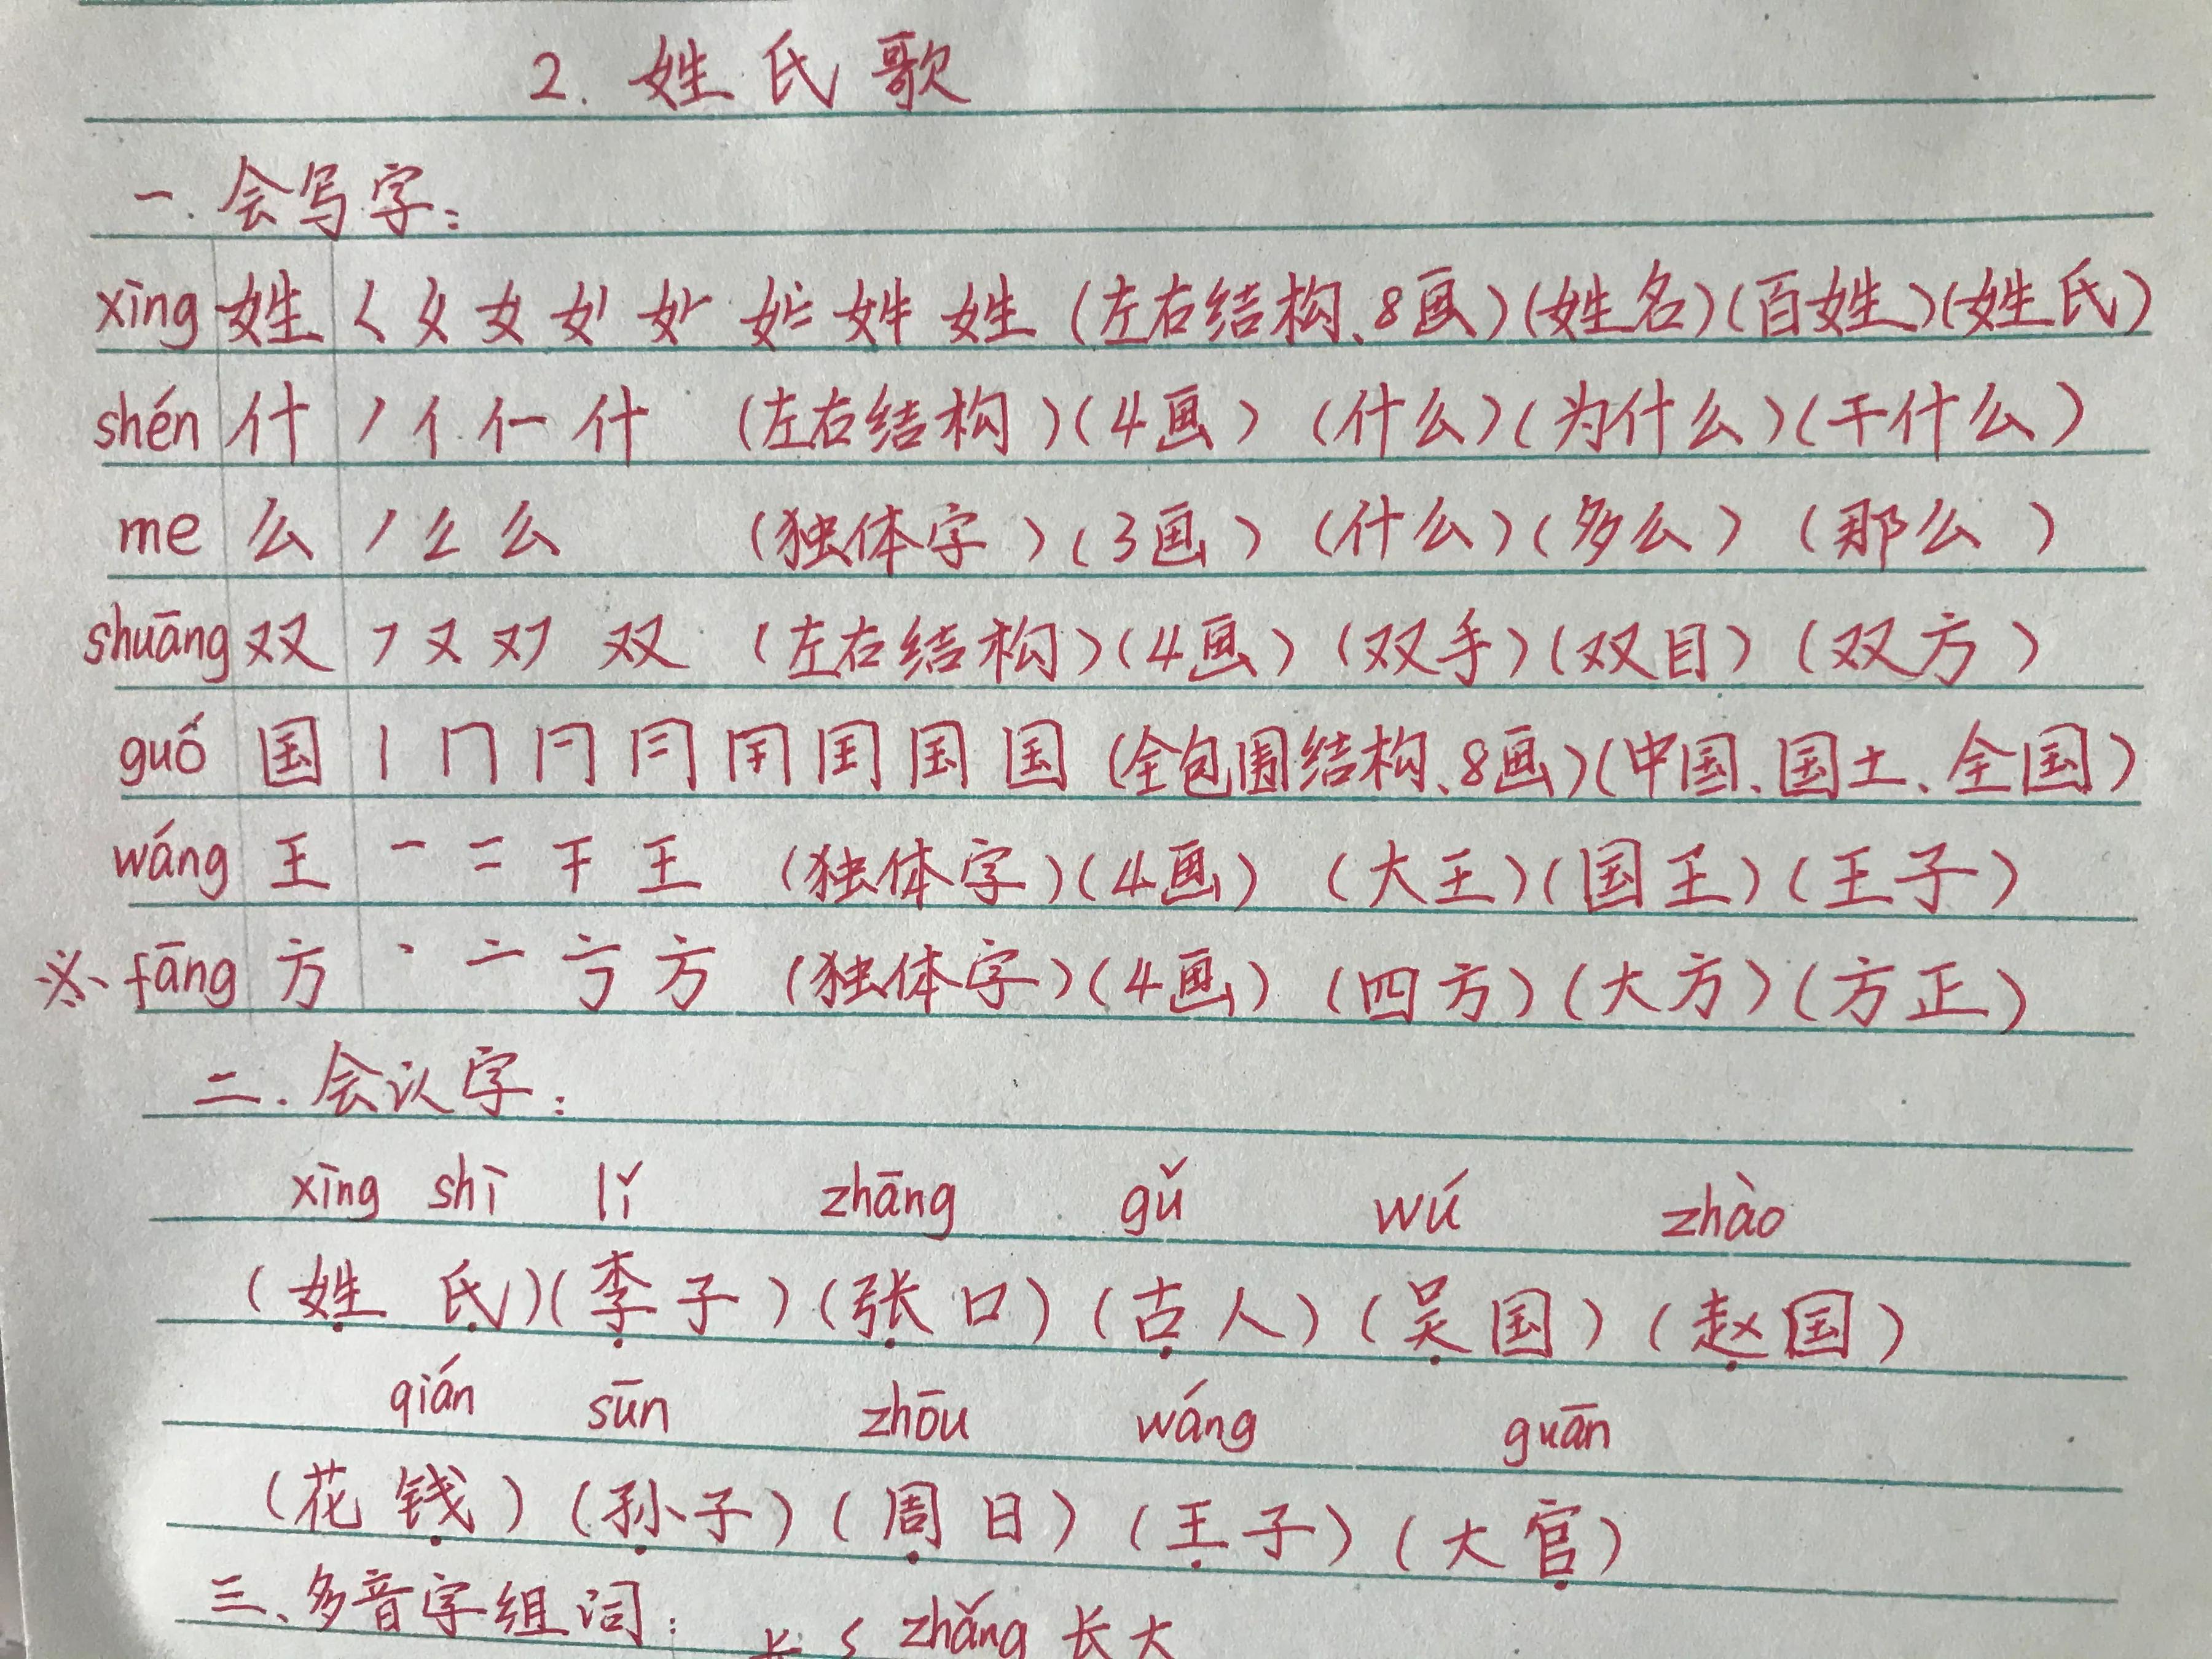 2. 姓氏歌
一. 会写字:
xìng 姓 く 夊 女 女丨 姓 (左右结构、8画)(姓名)(百姓)(姓氏)
shén 什 丿 亻 仁 什 (左右结构)(4画)(什么)(为什么)(干什么)
me 么 丿 么 (独体字)(3画)(什么)(多么)(那么)
shuāng 双 フ 又 双 (左右结构)(4画)(双手)(双目)(双方)
guó 国 丨 冂 国 (全包围结构、8画)(中国、国土、全国)
wáng 王 一 二 干 王 (独体字)(4画)(大王)(国王)(王子)
※ fāng 方 丶 亠 方 (独体字)(4画)(四方)(大方)(方正)
二. 会认字:
xìng shì lǐ zhāng gǔ wú zhào
(姓 氏)(李子)(张口)(古人)(吴国)(赵国)
qián sūn zhōu wáng guān
(花钱)(孙子)(周日)(王子)(大官)
三、多音字组词: 长 zhǎng 长大